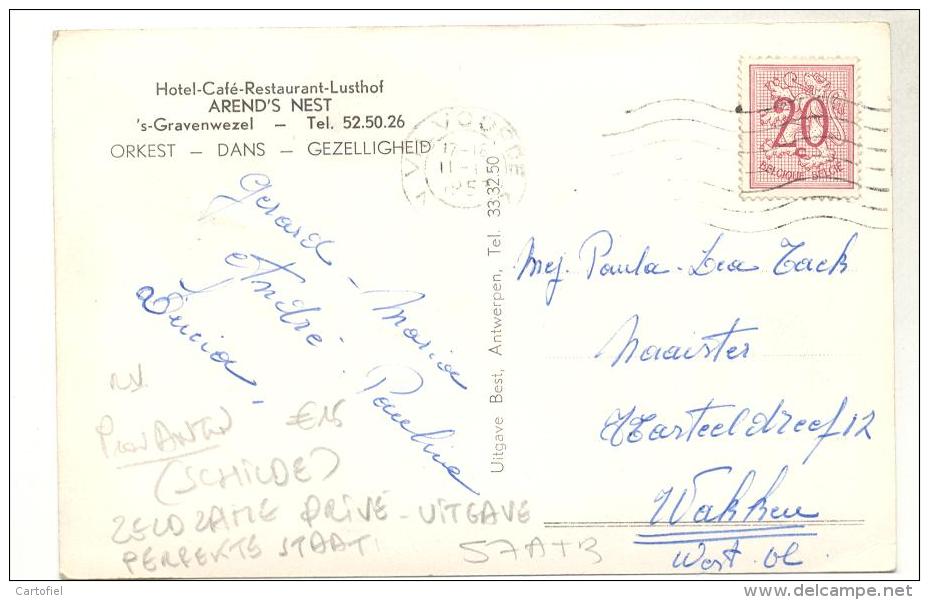 Hotel-Café-Restaurant-Lusthof
AREND'S NEST
's-Gravenwezel — Tel. 52.50.26
ORKEST — DANS — GEZELLIGHEID
17-18
11-
20
c
BELGIQUE-BELGIË
Gerard - Maria
André - Pauline
Lucia,
Uitgave Best, Antwerpen, Tel. 33.32.50
Mej. Paula-Lea Tack
Naaister
Kasteeldreef 12
Wakken
West. Vl.
N.V.
Prov ANTW €15
(SCHILDE)
ZELDZAME PRIVÉ-UITGAVE
PERFEKTE STAAT!
Cartofiel
delcampe.net